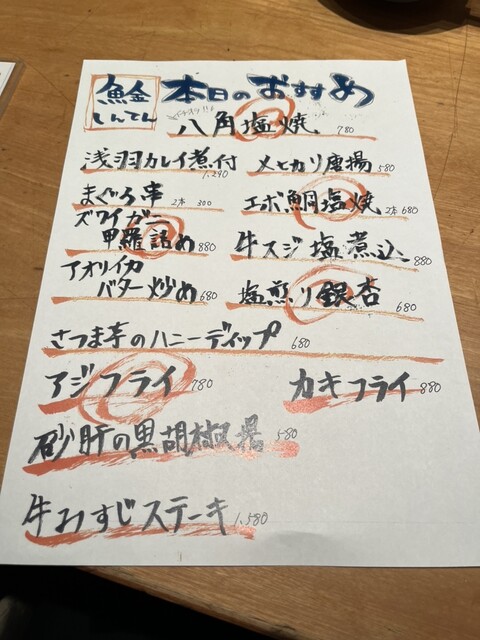 魚金
しんてん
本日のおすすめ
八角塩焼 780
浅羽カレイ煮付 1,290
メヒカリ唐揚 580
まぐろ串 2本 300
エボ鯛塩焼 2本 680
ズワイガニ
甲羅詰め 880
牛スジ塩煮込 880
アオリイカ
バター炒め 680
塩煎り銀杏 680
さつま芋のハニーディップ 680
アジフライ 780
カキフライ 880
砂肝の黒胡椒揚 580
牛みすじステーキ 1,580